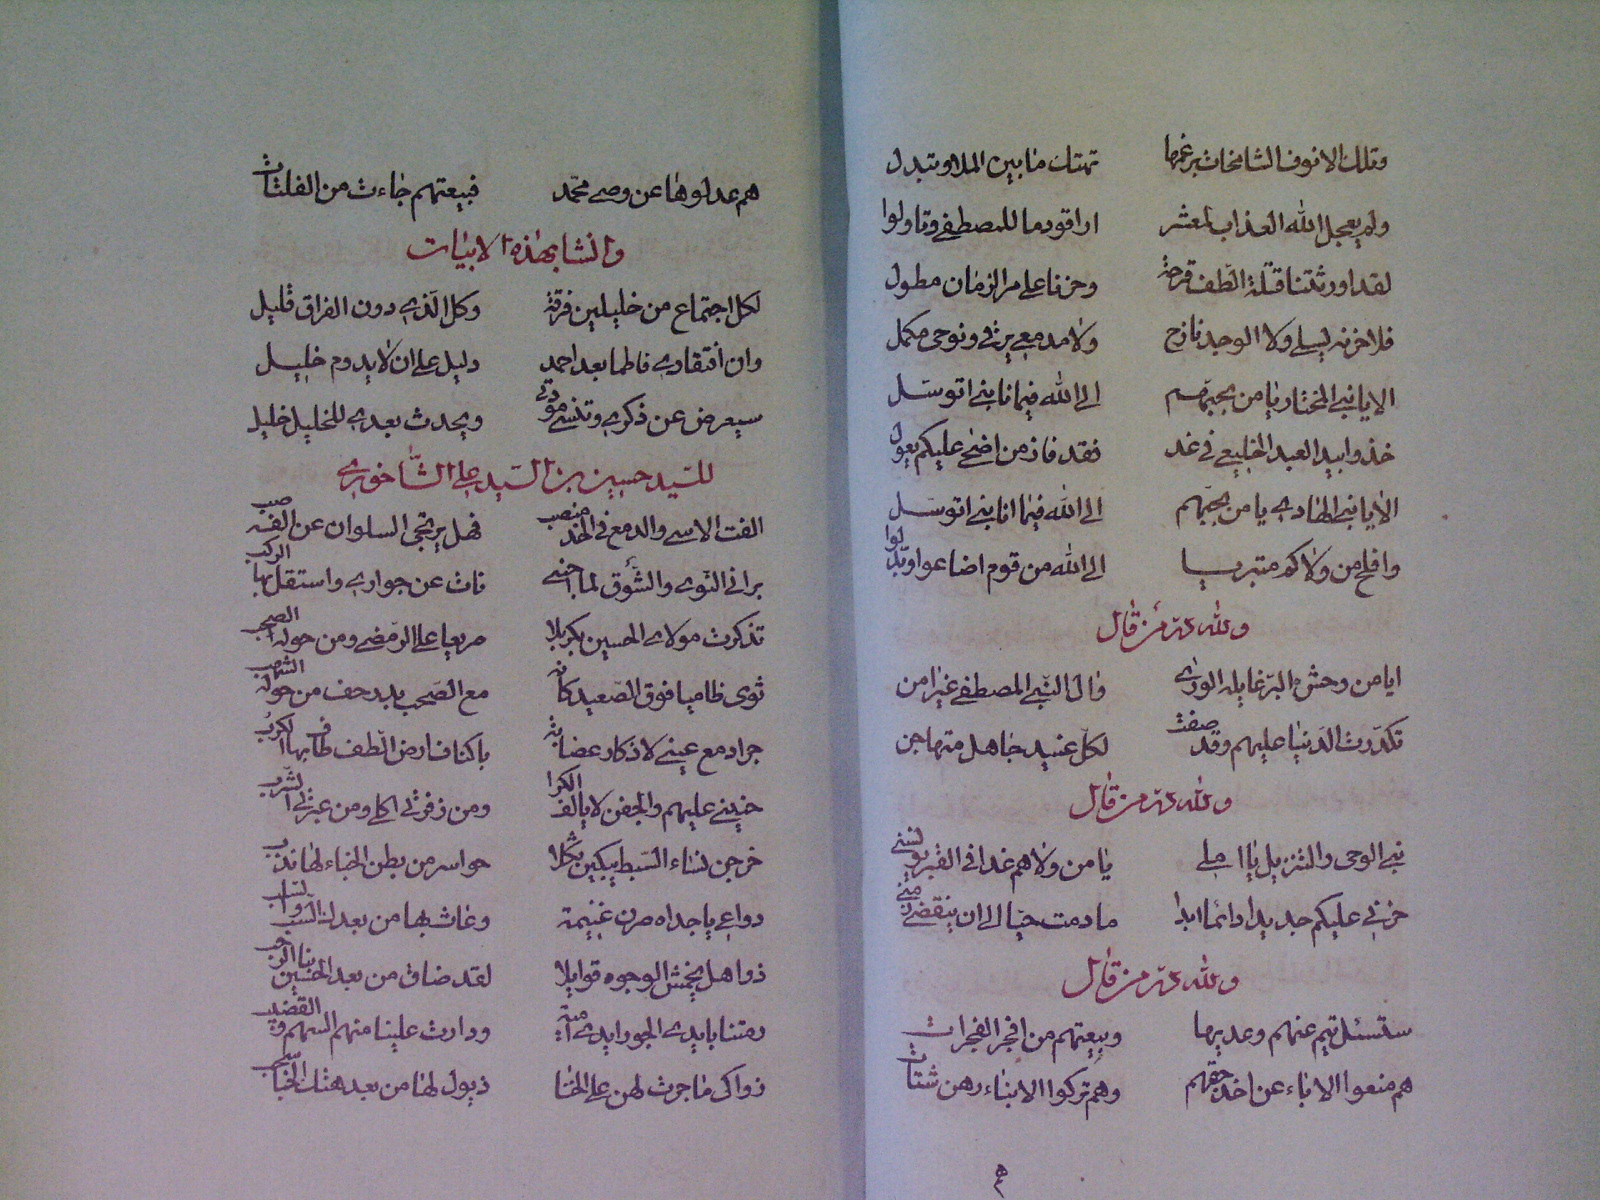 وتلك الانوف الشامخات برغمها تهتك ما بين الملا وتبدل
ولم يعجل الله العذاب لمعشر اراقوا دما للمصطفى وتاولوا
لقد اورثتنا قتلة الطف قرحة وحزنا على مر الزمان مطول
فلا حزنه يسلى ولا الوجد نازح ولا مدمعي يرقى ونوحى مكمل
الا يا بني المختار يا من بحبهم الى الله فيما نابني اتوسل
خذوا بيد العبد الخليعي في غد فقد فاز من اضحى عليكم يعول
الا يا بني الهادي يا من بحبهم الى الله فيما نابني اتوسل
وافلح من ولاكم متبريا الى الله من قوم اضاعوا وبدلوا
ولله در من قال
ايا من وحش البر غابله الورى وال النبي المصطفى غير امن
تكدرت الدنيا عليهم وقد صفت لكل عنيد جاهل متهاجن
ولله در من قال
بني الوحى والتنزيل يا املي يا من ولاهم غدا في القبر يونسني
حزني عليكم جديد دائما ابدا ما دمت حيا الى ان ينقضي زمني
ولله در من قال
ستسئل تيم عنهم وعديها وبيعتهم من افجر الفجرات
هم منعوا الاباء عن اخذ حقهم وهم تركوا الابناء رهن شتات
هم عدلوها عن وصي محمد فبيعتهم جاءت من الفلتات
وانشا بهذه الابيات
لكل اجتماع من خليلين فرقة وكل الذي دون الفراق قليل
وان افتقادي فاطما بعد احمد دليل على ان لا يدوم خليل
سيعرض عن ذكري وتنسى مودتي ويحدث بعدي للخليل خليل
للسيد حسين بن السيد علي الشاخوري
الفت الاسى والدمع في الخد منصب فهل يرتجى السلوان عن الفه صب
براني النوى والشوق لما احبتي نات عن جواري واستقل بها الركب
تذكرت مولاي الحسين بكربلا صريعا على الرمضى ومن حوله الصحب
ثوى ظاميا فوق الصعيد كانه مع الصحب بدر حف من حوله الشهب
جرا دمع عيني لاذكار عضابة باكناف ارض الطف طاف بها الكرب
حنيني عليهم والجفن لا يالف الكرا ومن زفرتي اكلي ومن عبرتي الشرب
خرجن نساء السبط يبكين ثكلا حواسر من بطن الخباء لها ندب
دواعي يا جداه صرن غنيمة وعاث بها من بعدك النهب والسلب
ذواهل يخمش الوجوه قوايلا لقد ضاق من بعد الحسين بنا الرحب
رمتنا بايدي الجور ايدي امية ودارت علينا منهم السهم والقضب
زواكى ما جرت لهن على الخنا ذيول لها من بعد هتك الخبا سحب